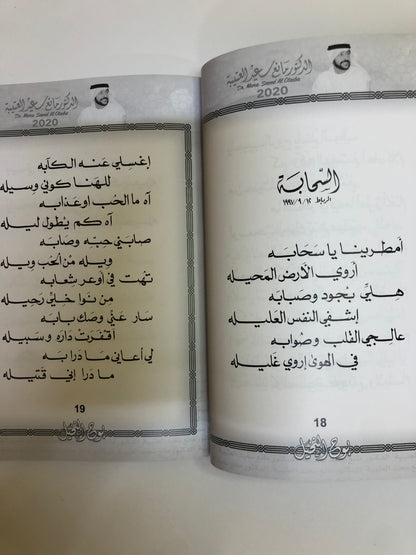 الدكتور مانع سعيد العتيبة
Dr. Mana Saeed Al Otaiba
2020
السحابة
الرباط ١٩٩٧/٩/١٢
أمطرينا يا سحابه
أروي الأرض المحيله
هلي بجود وصبابه
إشفي النفس العليله
عالجي القلب وصوابه
في الهوى إروي غليله
18
بوح النخيل
الدكتور مانع سعيد العتيبة
Dr. Mana Saeed Al Otaiba
2020
إغسلي عنه الكآبه
للهنا كوني وسيله
آه ما الحب اوعذابه
آه كم يطول ليله
صابني حبه وصابه
ويله من الحب ويله
تهت في أوعر شعابه
من نوا خلي رحيله
سار عني وصك بابه
أقفرت داره وسبيله
لي أعاني ما درا به
ما درا إني قتيله
19
بوح النخيل